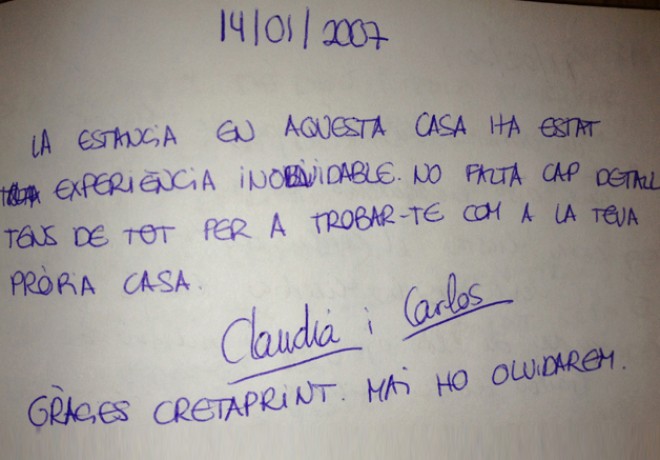 14/01/2007
LA ESTANCIA EN AQUESTA CASA HA ESTAT
UNA EXPERIÈNCIA INOLVIDABLE. NO FALTA CAP DETALL
TENS DE TOT PER A TROBAR-TE COM A LA TEVA
PRÒRIA CASA.
Claudia i Carlos
GRÀCIES CRETAPRINT. MAI HO OLVIDAREM.